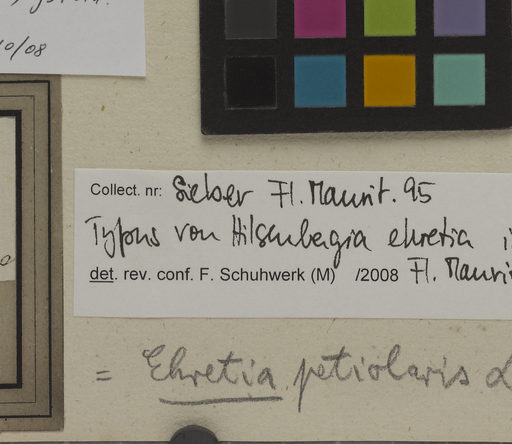 10/08
Collect. nr: Sieber Fl. Maurit. 95
Typus von Hilsenbergia ehretia
det. rev. conf. F. Schuhwerk (M) /2008 Fl. Mauri
= Ehretia petiolaris